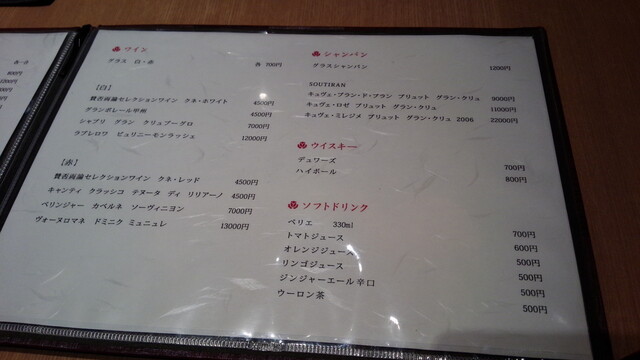 ワイン
グラス 白・赤 各 700円
【白】
賛否両論セレクションワイン クネ・ホワイト 4500円
グランポレール甲州 4500円
シャブリ グラン クリュブーグロ 7000円
ラブレロワ ピュリニーモンラッシェ 12000円
【赤】
賛否両論セレクションワイン クネ・レッド 4500円
キャンティ クラッシコ テヌータ ディ リリアーノ 4500円
ベリンジャー カベルネ ソーヴィニヨン 7000円
ヴォーヌロマネ ドミニク ミュニュレ 13000円
シャンパン
グラスシャンパン 1200円
SOUTIRAN
キュヴェ・ブラン・ド・ブラン ブリュット グラン・クリュ 9000円
キュヴェ・ロゼ ブリュット グラン・クリュ 11000円
キュヴェ・ミレジメ ブリュット グラン・クリュ 2006 22000円
ウイスキー
デュワーズ 700円
ハイボール 800円
ソフトドリンク
ペリエ 330ml 700円
トマトジュース 600円
オレンジジュース 500円
リンゴジュース 500円
ジンジャーエール辛口 500円
ウーロン茶 500円